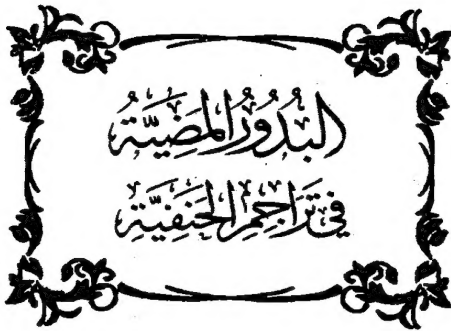 البُدُوْرُ المَضِيَّةُ
فِي تَرَاجِمِ الحَنَفِيَّةِ